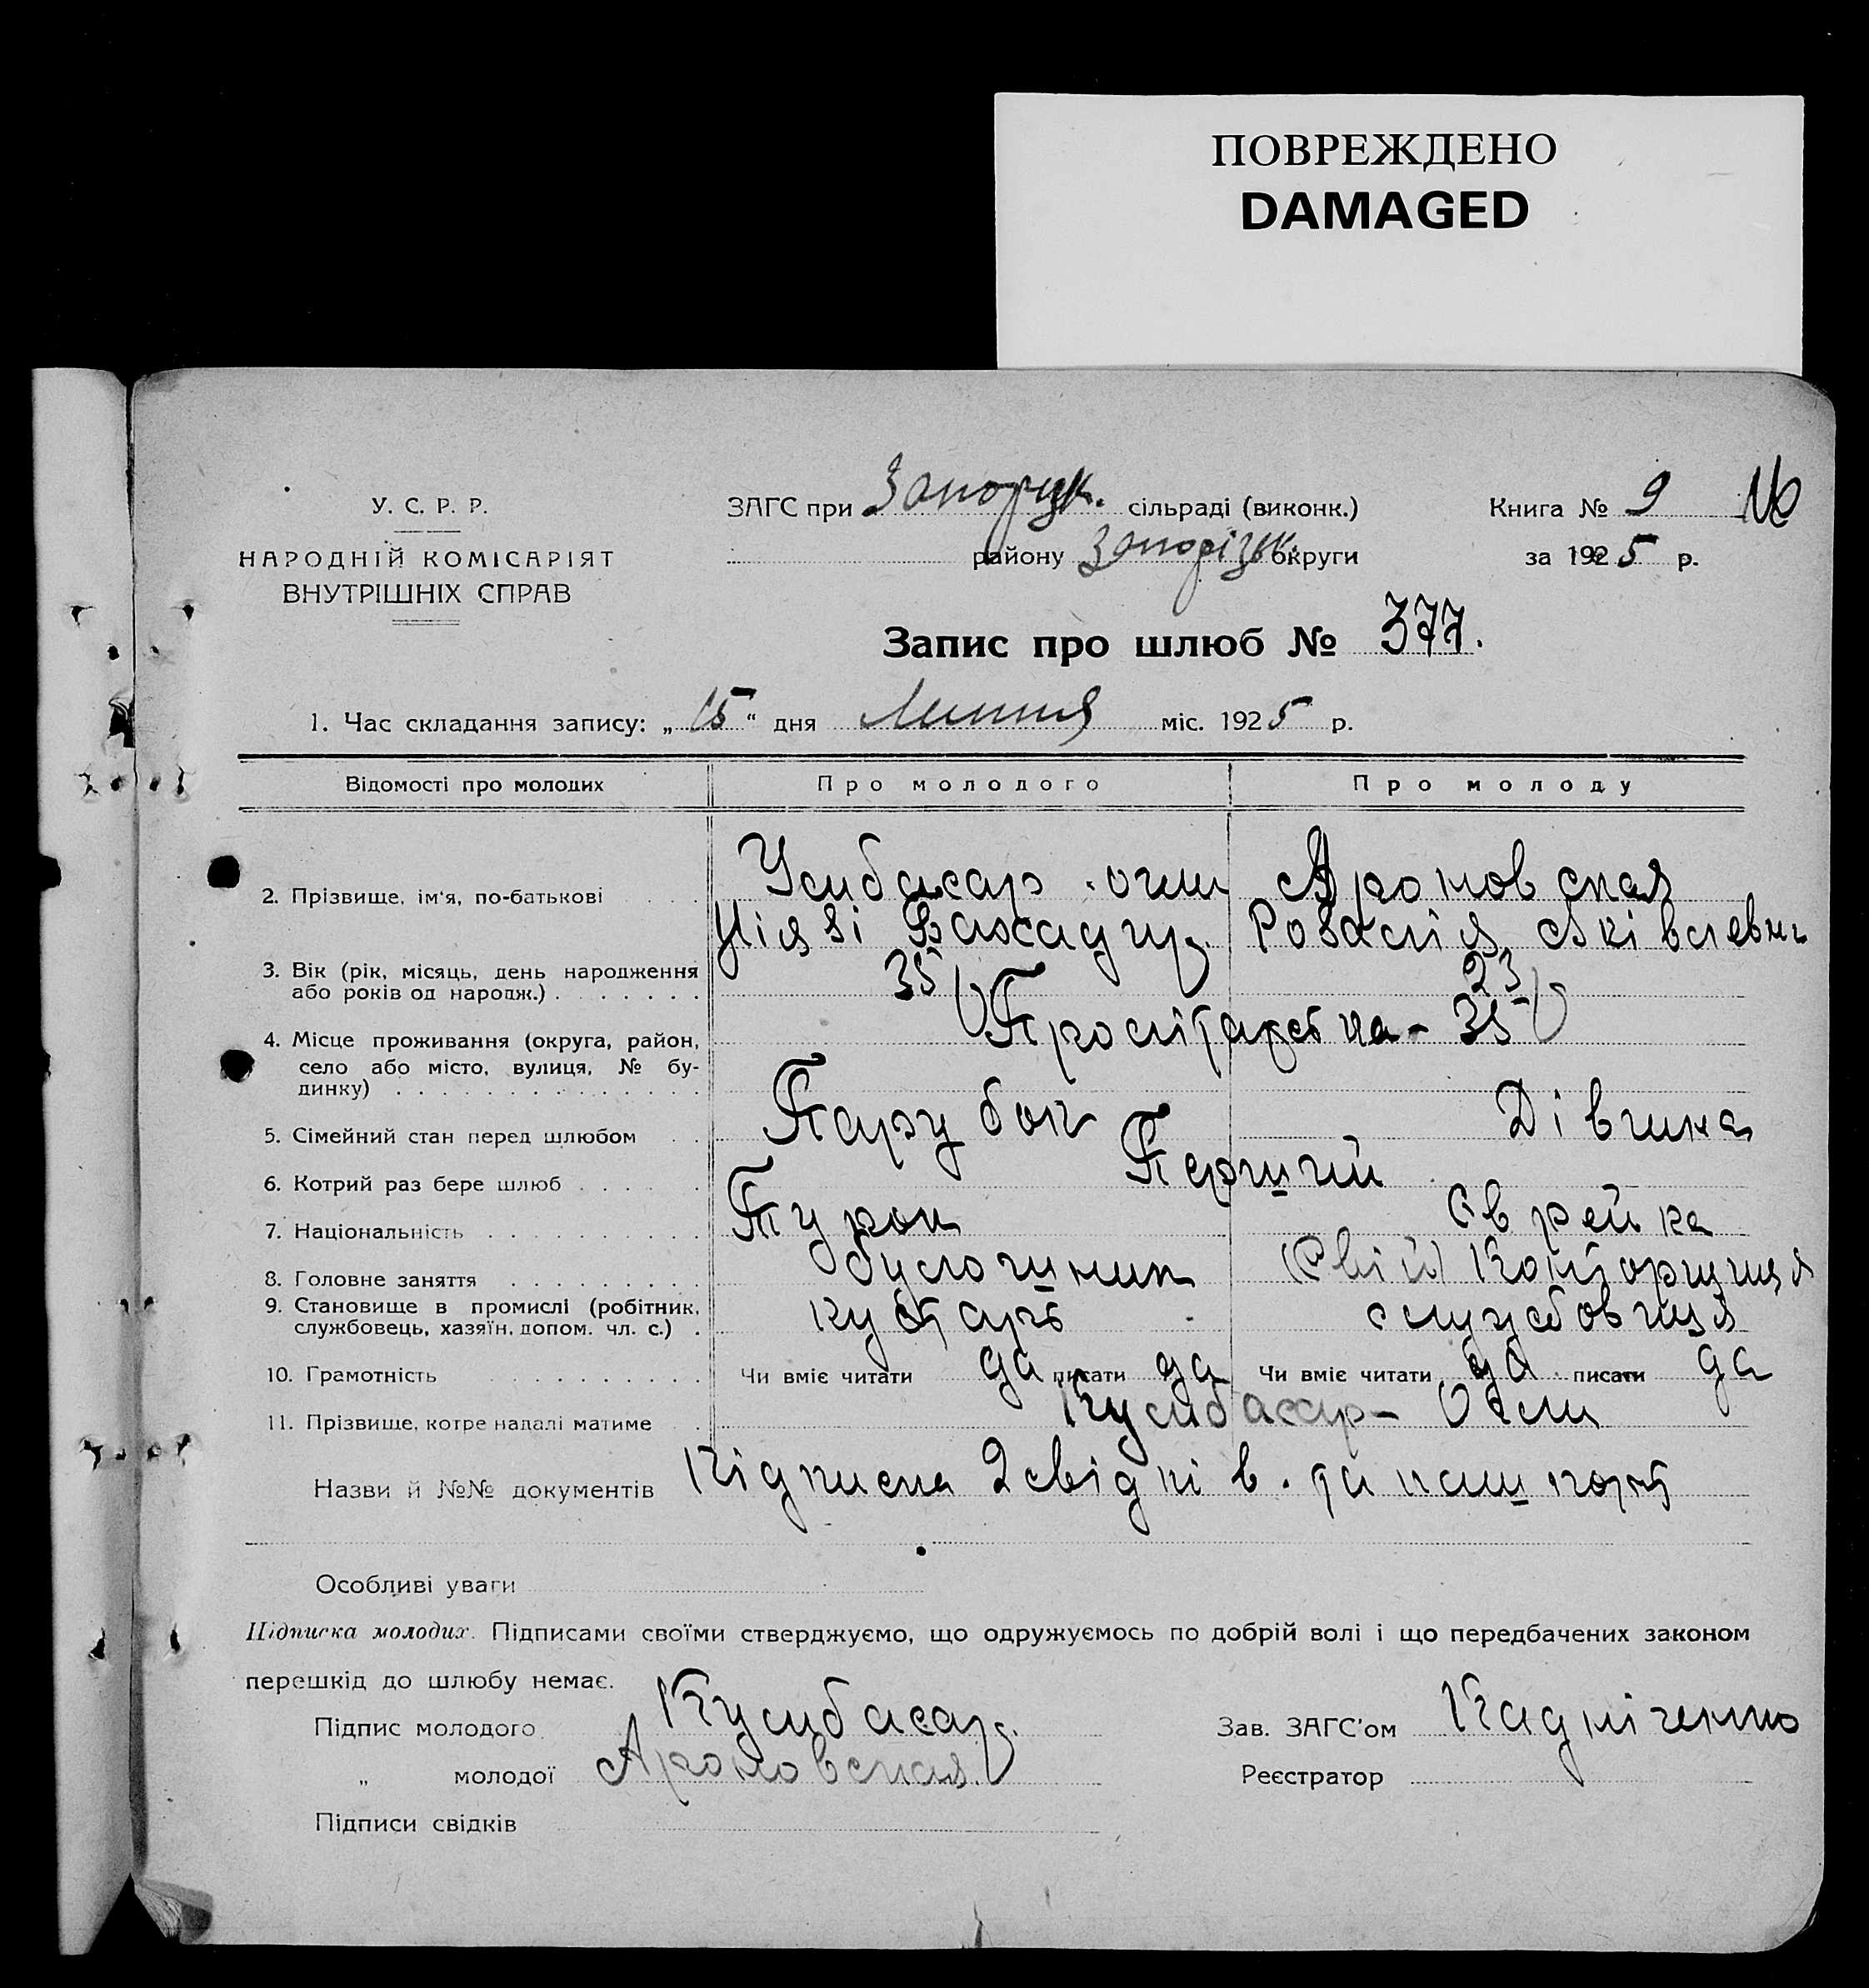 ПОВРЕЖДЕНО
DAMAGED
У. С. Р. Р.
НАРОДНІЙ КОМІСАРІЯТ
ВНУТРІШНІХ СПРАВ
ЗАГС при Запорізьк. сільраді (виконк.)
району Запорізьк. округи
Книга № 9
за 1925 р.
Запис про шлюб № 377.
1. Час складання запису: „15“ дня Липня міс. 1925 р.
Відомості про молодих Про молодого Про молоду
2. Прізвище, ім'я, по-батькові Арановская
Розалія Яківлевна
3. Вік (рік, місяць, день народження 35 23
або років од народж.)
4. Місце проживання (округа, район, 35
село або місто, вулиця, № бу-
динку)
5. Сімейний стан перед шлюбом Парубок Дівчина
6. Котрий раз бере шлюб Перший
7. Національність Турок Єврейка
8. Головне заняття булочник Конторщиця
9. Становище в промислі (робітник, кустарь службовиця
службовець, хазяїн, допом. чл. с.)
10. Грамотність Чи вміє читати да писати да Чи вміє читати да писати да
11. Прізвище, котре надалі матиме Кулибасар-Огли
Назви й №№ документів Підписка 2 свідків. та пашпорт
Особливі уваги
Підписка молодих. Підписами своїми стверджуємо, що одружуємось по добрій волі і що передбачених законом
перешкід до шлюбу немає.
Підпис молодого Кулибасар.
„ молодої Ароновская.
Зав. ЗАГС'ом
Реєстратор
Підписи свідків